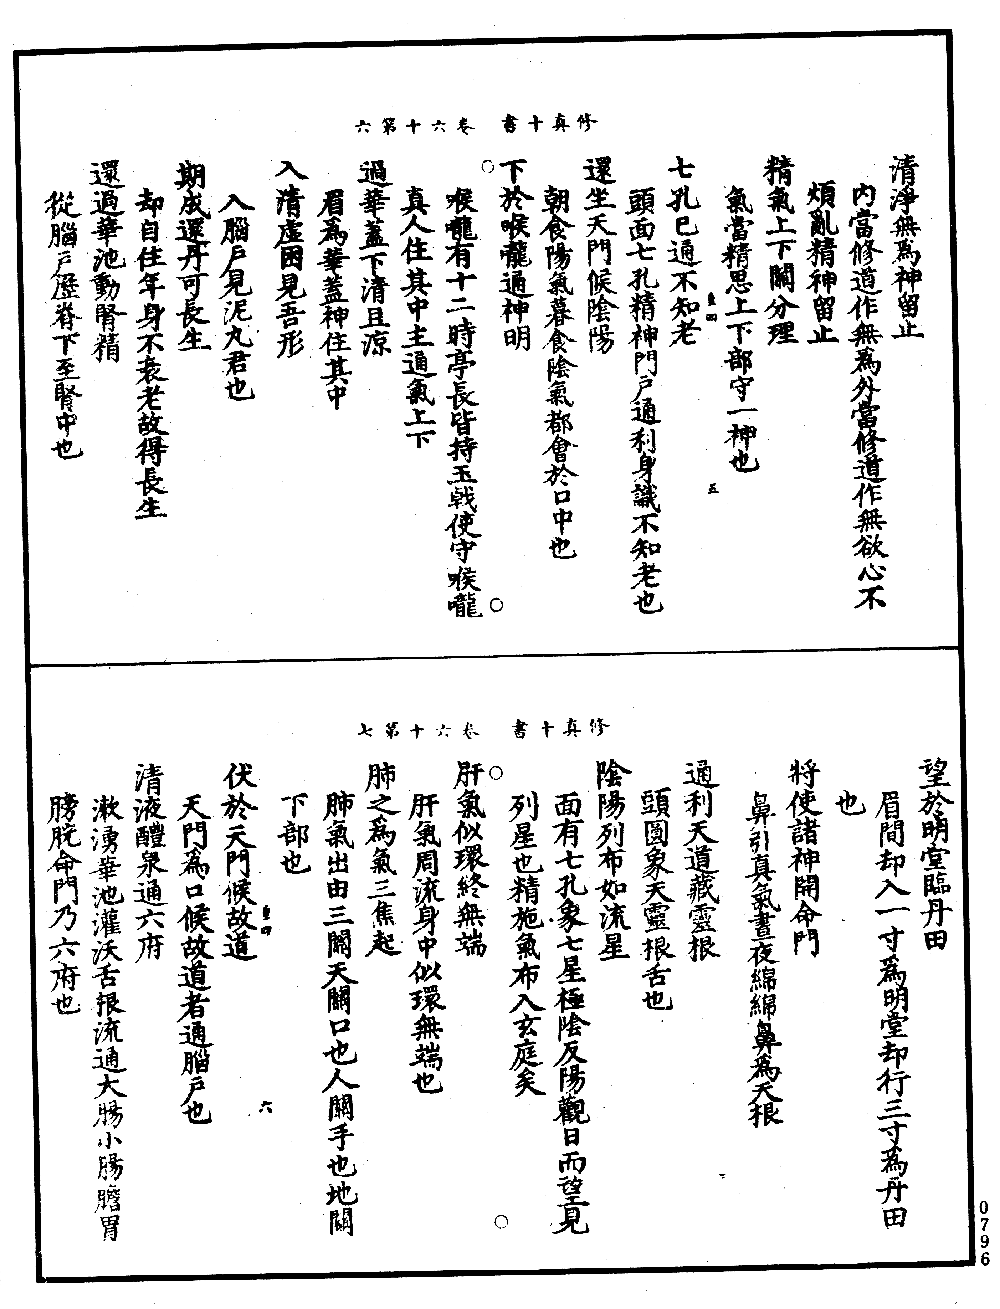 修真十書　卷六十第六
清淨無為神留止
內當修道作無為外當修道作無欲心不
煩亂精神留止
精氣上下關分理
氣當精思上下部守一神也
重四　五
七孔已通不知老
頭面七孔精神門戶通利身識不知老也
還坐天門候陰陽
朝食陽氣暮食陰氣都會於口中也
下於喉嚨通神明
喉嚨有十二時亭長皆持玉戟使守喉嚨
真人住其中主通氣上下
過華蓋下清且涼
眉為華蓋神住其中
入清虛困見吾形
入腦戶見泥丸君也
期成還丹可長生
却自住年身不衰老故得長生
還過華池動腎精
從腦戶歷脊下至腎中也
修真十書　卷六十第七
望於明堂臨丹田
眉間却入一寸為明堂却行三寸為丹田
也
將使諸神開命門
鼻引真氣晝夜綿綿鼻為天根
通利天道藏靈根
頭圓象天靈根舌也
陰陽列布如流星
面有七孔象七星極陰反陽觀日而望見
列星也精施氣布入玄庭矣
肝氣似環終無端
肝氣周流身中似環無端也
肺之為氣三焦起
肺氣出由三關天關口也人關手也地關
下部也
重四　六
伏於天門候故道
天門為口候故道者通腦戶也
清液醴泉通六府
漱湧華池灌沃舌根流通大腸小腸膽胃
膀胱命門乃六府也
0796